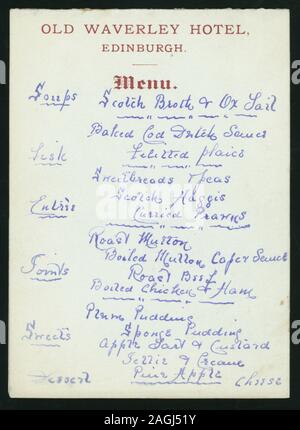 OLD WAVERLEY HOTEL,
EDINBURGH.
Menu.
Soups Scotch Broth & Ox Tail
Baked Cod Dutch Sauce
Fish Filetted plaice
Sweetbreads & peas
Scotch Haggis
Entrées Curried Prawns
Roast Mutton
Boiled Mutton Caper Sauce
Joints Roast Beef
Boiled Chicken & Ham
Plum Pudding
Sweets Sponge Pudding
Apple Tart & Custard
Jellie & Creams
Dessert Pine Apple Cheese
alamy
Image ID: 2AGJ51Y
www.alamy.com